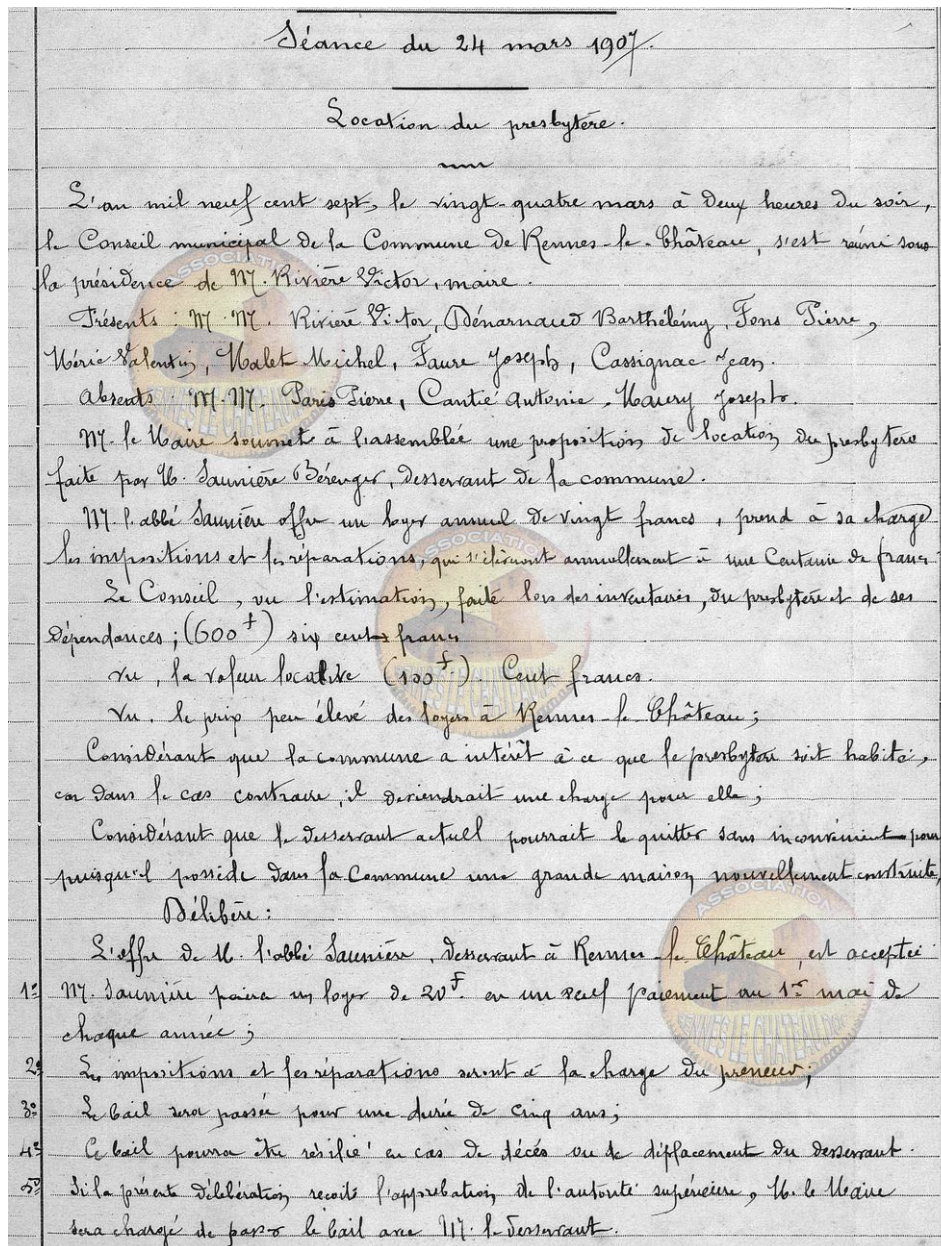 Séance du 24 mars 1907.
Location du presbytère.
L'an mil neuf cent sept, le vingt-quatre mars à deux heures du soir,
le Conseil municipal de la Commune de Rennes-le-Château, s'est réuni sous
la présidence de M. Rivière Victor, maire.
Présents : M.M. Rivière Victor, Dénarnaud Barthélémy, Fons Pierre,
Méric Valentin, Malet Michel, Faure Joseph, Cassignac Jean.
Absents : M.M. Paris Pierre, Cantié Antonie, Maury Joseph.
M. le Maire soumet à l'assemblée une proposition de location du presbytère
faite par M. Saunière Bérenger, desservant de la commune.
M. l'abbé Saunière offre un loyer annuel de vingt francs, prend à sa charge
les impositions et les réparations, qui s'élèvent annuellement à une Centaine de francs
Le Conseil, vu l'estimation, faite lors des inventaires, du presbytère et de ses
dépendances ; (600f) six cents francs
vu, la valeur locative (100f) Cent francs.
Vu, le prix peu élevé des loyers à Rennes-le-Château ;
Considérant que la commune a intérêt à ce que le presbytère soit habité,
car dans le cas contraire, il deviendrait une charge pour elle ;
Considérant que le desservant actuel pourrait le quitter sans inconvénient pour
puisqu'il possède dans la Commune une grande maison nouvellement construite,
Délibère :
L'offre de M. l'abbé Saunière, desservant à Rennes-le-Château, est acceptée
1º M. Saunière paiera un loyer de 20f. en un seul paiement au 1er mai de
chaque année ;
2º Les impositions et les réparations seront à la charge du preneur ;
3º Le bail sera passée pour une durée de cinq ans ;
4º Ce bail pourra être résilié en cas de décés ou de déplacement du desservant.
5º Si la présente délibération reçoit l'approbation de l'autorité supérieure, M. le Maire
sera chargé de passer le bail avec M. le desservant.
ASSOCIATION
RENNES LE CHATEAU.DOC